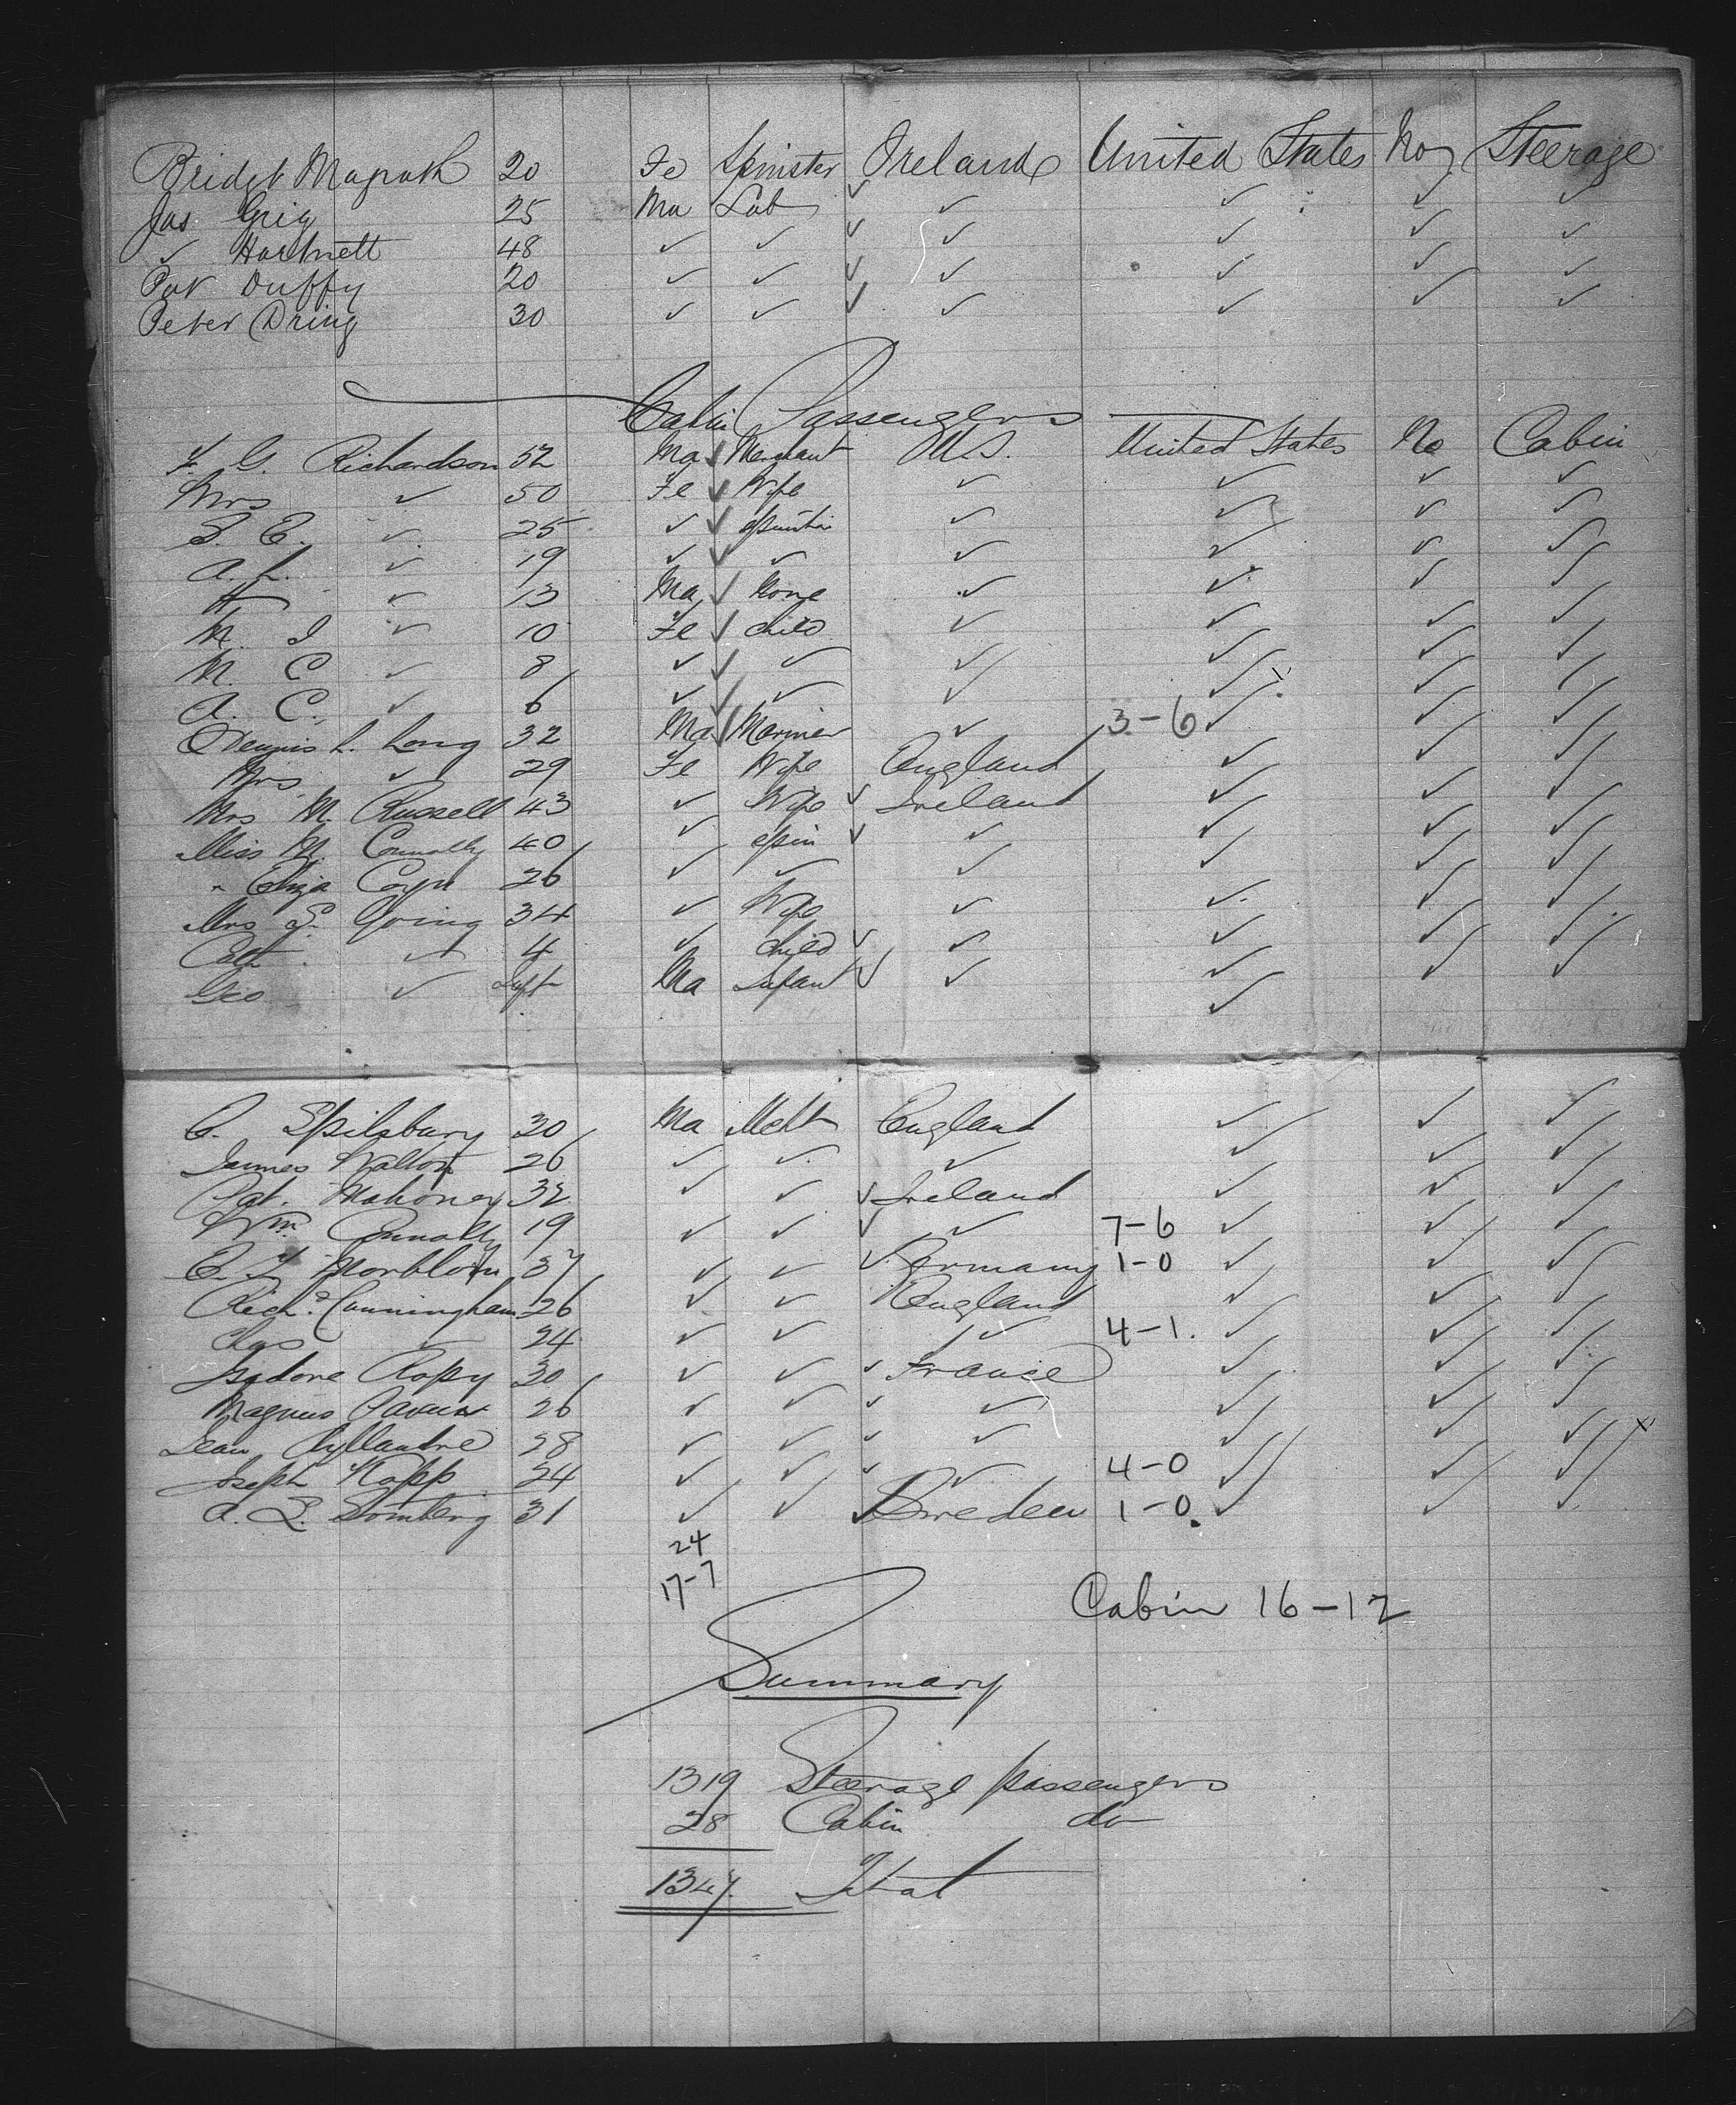 Bridget Magrath 20 Fe Spinster Ireland United States No Steerage
Jas Greig 25 Ma Lab ✓ ✓ ✓ ✓ ✓
✓ Hartnett 48 ✓ ✓ ✓ ✓ ✓ ✓ ✓
Pat Duffy 20 ✓ ✓ ✓ ✓ ✓ ✓ ✓
Peter Dring 30 ✓ ✓ ✓ ✓ ✓ ✓ ✓
Cabin Passengers
F. G. Richardson 52 Ma ✓ Merchant U.S. United States No Cabin
Mrs ✓ 50 Fe ✓ Wife ✓ ✓ ✓ ✓
S. E. ✓ 25 ✓ ✓ ✓ ✓ ✓ ✓
A. L. ✓ 19 ✓ ✓ ✓ ✓ ✓ ✓ ✓
H ✓ 13 Ma ✓ None ✓ ✓ ✓ ✓
M. I ✓ 10 Fe ✓ Child ✓ ✓ ✓ ✓
M. C ✓ 8 ✓ ✓ ✓ ✓ ✓ ✓ ✓
A. C. ✓ 6 ✓ ✓ ✓ ✓ ✓ ✓ ✓
Dennis L. Long 32 Ma ✓ Mariner ✓ 3-6 ✓ ✓ ✓
Mrs ✓ 29 Fe Wife England ✓ ✓ ✓
Mrs M. Russell 43 ✓ Wife ✓ Ireland ✓ ✓ ✓
Miss M. Connolly 40 ✓ Spin ✓ ✓ ✓ ✓ ✓
" Eliza 26 ✓ ✓ ✓ ✓ ✓ ✓
Mrs S. Going 34 ✓ Wife ✓ ✓ ✓ ✓
Cath ✓ 4 ✓ Child ✓ ✓ ✓ ✓ ✓
Geo ✓ Inft Ma Infant ✓ ✓ ✓ ✓ ✓
C. Spilsbury 30 Ma Mcht England ✓ ✓ ✓
James Walton 26 ✓ ✓ ✓ ✓ ✓ ✓
Pat. Mahoney 32 ✓ ✓ ✓ Ireland ✓ ✓ ✓
Wm. Connolly 19 ✓ ✓ ✓ ✓ 7-6 ✓ ✓ ✓
37 ✓ ✓ ✓ Germany 1-0 ✓ ✓ ✓
Richd. Cunningham 26 ✓ ✓ England ✓ ✓ ✓
Chas ✓ 24 ✓ ✓ ✓ 4-1. ✓ ✓ ✓
Isadore Ropy 30 ✓ ✓ ✓ France ✓ ✓ ✓
Magnus 26 ✓ ✓ ✓ ✓ ✓ ✓ ✓
Jean 28 ✓ ✓ ✓ ✓ ✓ ✓ ✓ x
Joseph Kopp 24 ✓ ✓ ✓ ✓ 4-0 ✓ ✓ ✓
31 ✓ ✓ ✓ Sweden 1-0. ✓ ✓ ✓
24
17-7
Cabin 16-12
Summary
1319 Steerage passengers
28 Cabin do
1347. Total